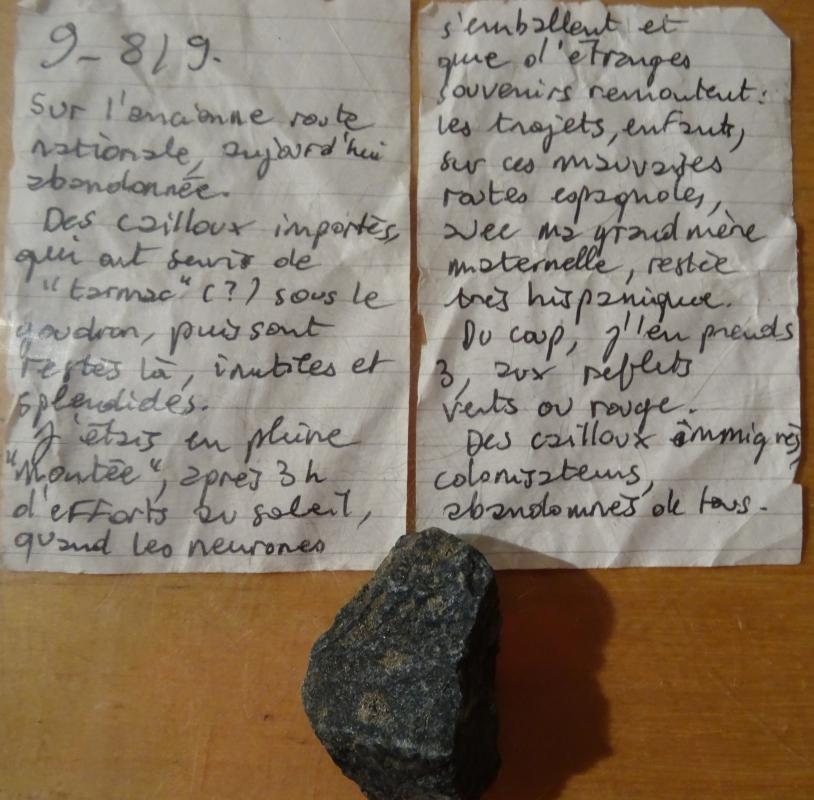 9-8/9.
Sur l'ancienne route
nationale, aujourd'hui
abandonnée.
Des cailloux importés,
qui ont servis de
"tarmac" (?) sous le
goudron, puis sont
restés là, inutiles et
splendides.
J'étais en pleine
"montée", après 3h
d'efforts au soleil,
quand les neurones
s'emballent et
que d'étranges
souvenirs remontent:
les trajets, enfants,
sur ces mauvaises
routes espagnoles,
avec ma grand mère
maternelle, restée
très hispanique.
Du coup, j'en prends
3, aux reflets
verts ou rouge.
Des cailloux immigrés,
colonisateurs,
abandonnés de tous.